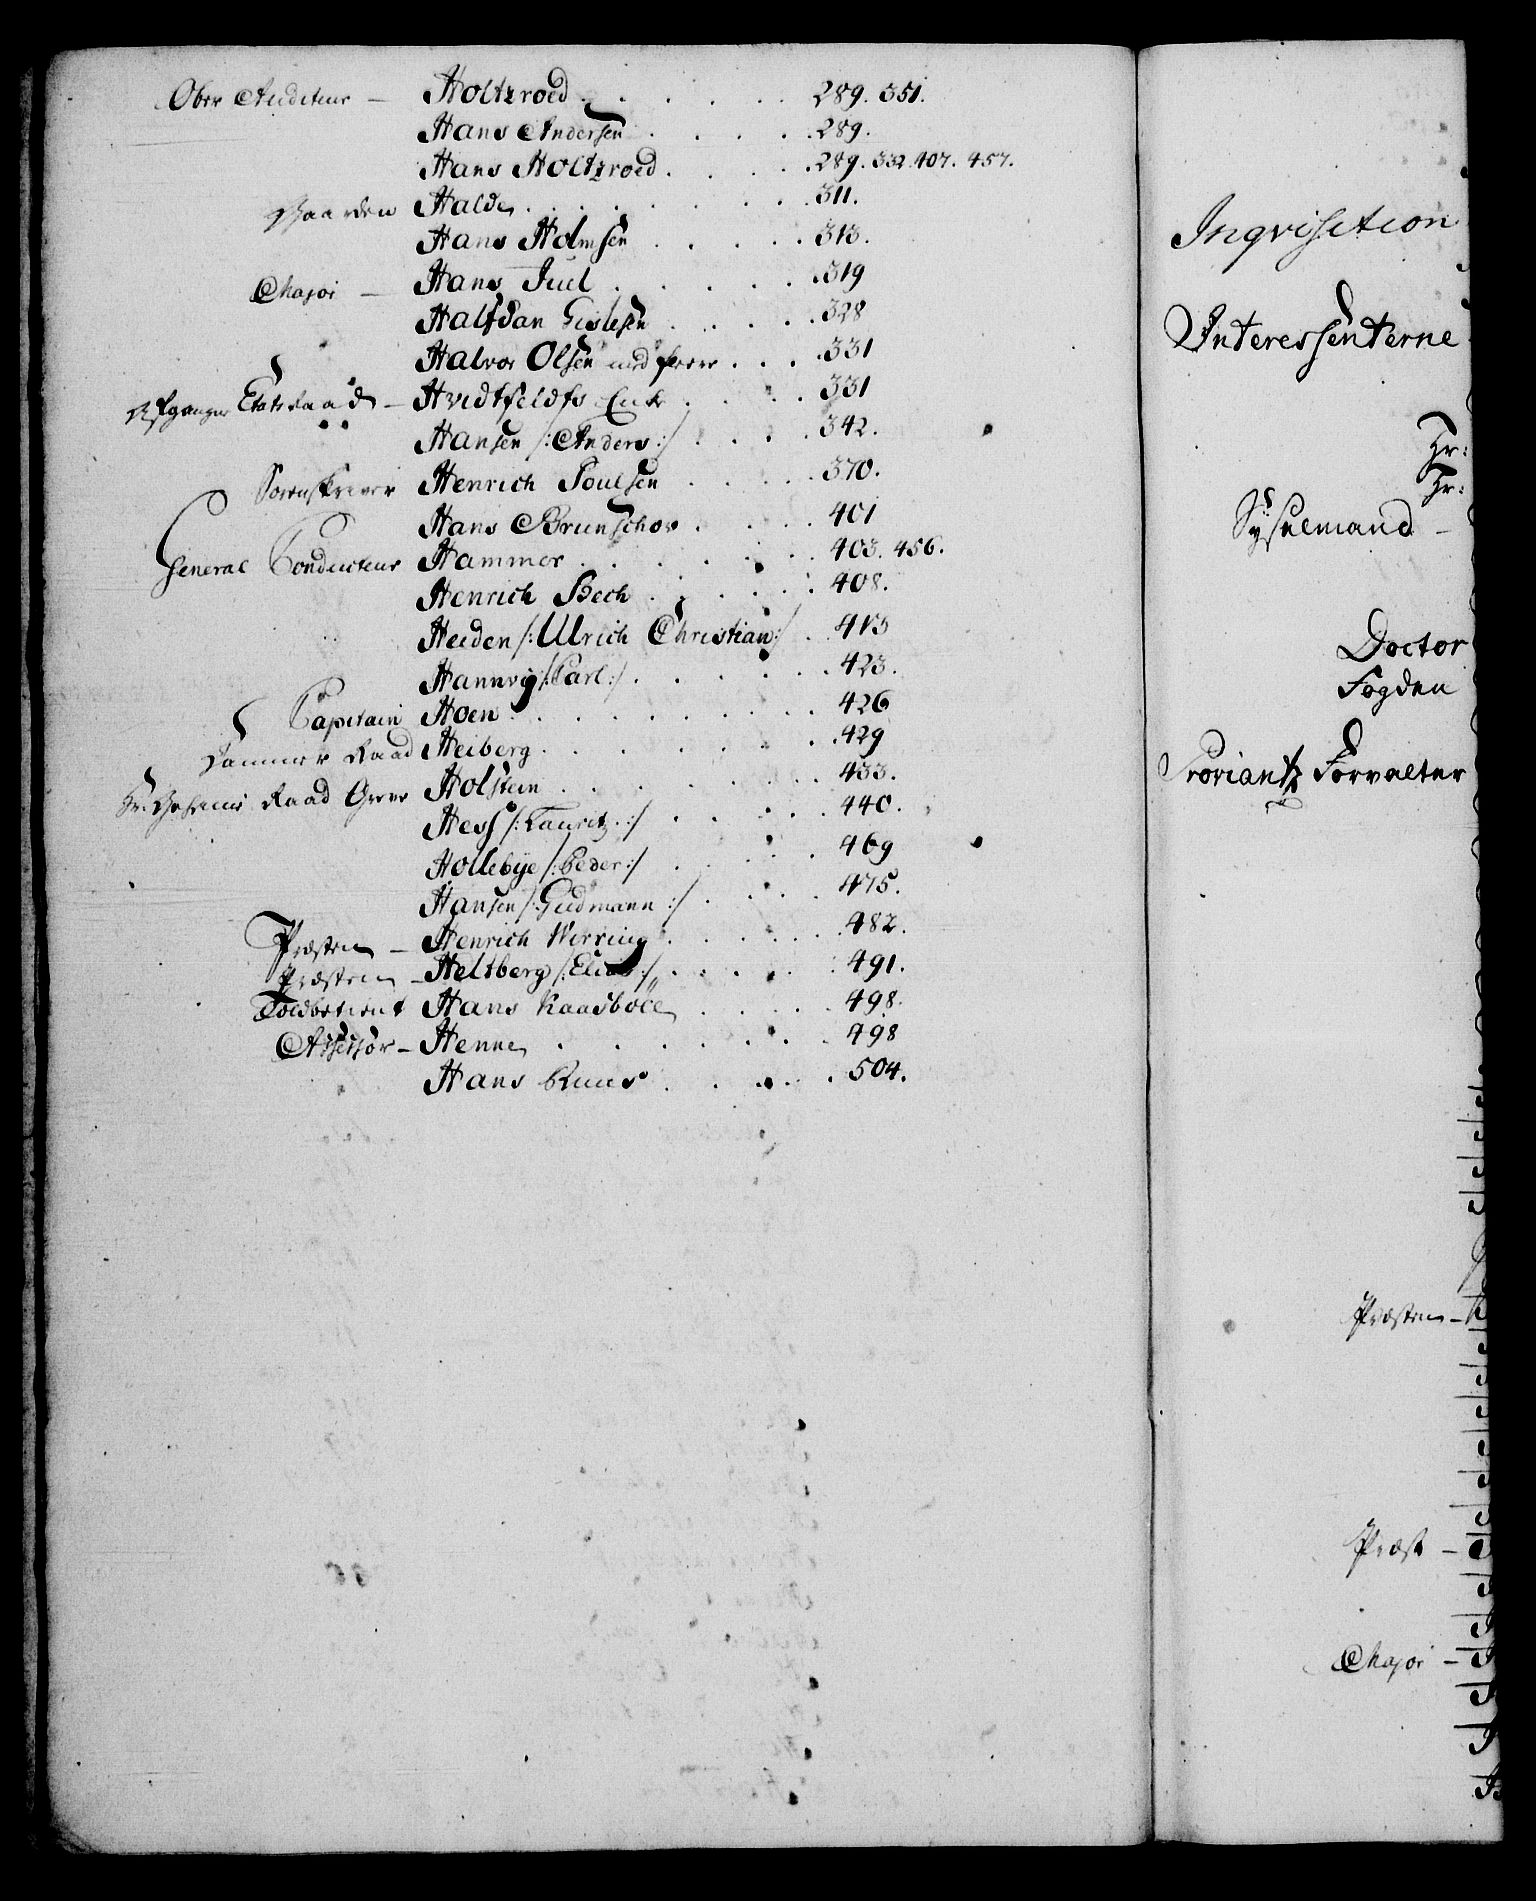 Ober Auditeur — Holtzroed . . . . . . 289. 351.
Hans Andersen . . . . 289.
Hans Holtzroed . . . . 289. 332. 407. 457.
Gaarden Halde . . . . . . . . 311.
Hans Holmsen . . . . . 313.
Major — Hans Juel . . . . . 319
Halfdan Gislesen . . . . . 328
Halvor Olsen med fleere . . . . 331
Afgangne Etatsraads — Hvidtfeldts Enke . . . . 331
Hansen /: Anders :/ . . . . 342.
Sorenskriver Henrich Poulsen . . . . 370.
Hans Brunschov . . . . . 401
General Conducteur Hammer . . . . . . 403. 456.
Henrich Bech . . . . . . 408.
Heiden /: Ulrich Christian :/ . 413
Hannvig /: Carl :/ . . . . . . 423.
Capitain Hoen . . . . . . . . . 426
Kammer Raad Heiberg . . . . . . . . 429
Hr. Geheime Raad Greve Holstein . . . . . . . 433.
Hess /: Lauritz :/ . . . . . 440.
Hollebye /: Peder :/ . . . . 469
Hansen /: Gudmann :/ . . . . 475.
Præsten — Henrich Wirring . . . . . . 482.
Præsten — Heltberg /: Elias :/ . . . . . 491.
Toldbetient Hans Kaasbøll . . . . . 498.
Assessor — Henne . . . . . . . 498
Hans Kuus . . . . . 504.
Inqvisition
Interessenterne
Hr:
Hr:
Sysselmand —
Doctor
Fogden
Proviantz Forvalter
Præsten —
Præst —
Major —